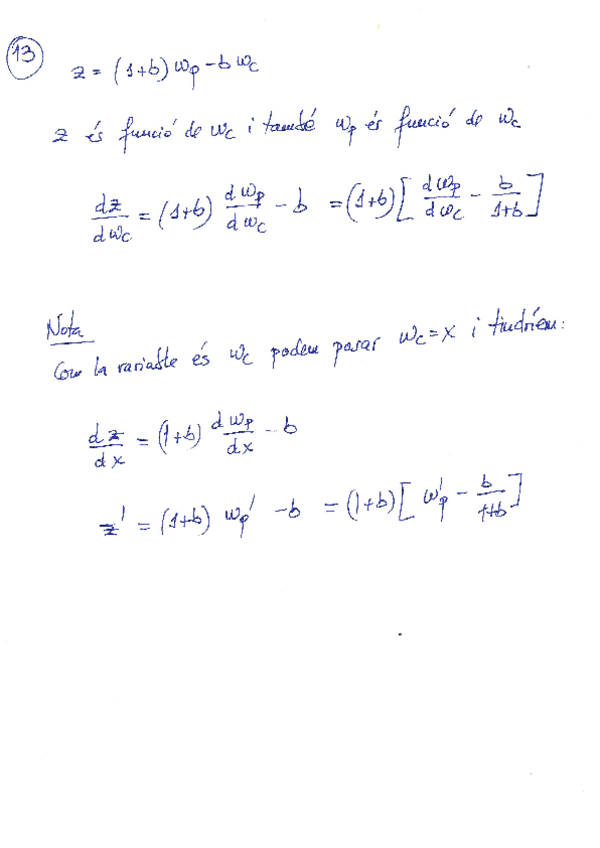 13
z = (1+b) wp - b wc
z és funció de wc i també wp és funció de wc
dz/dwc = (1+b) dwp/dwc - b = (1+b)[dwp/dwc - b/1+b]
Nota
Com la variable és wc podem posar wc = x i tindríem:
dz/dx = (1+b) dwp/dx - b
z' = (1+b) wp' - b = (1+b)[wp' - b/1+b]